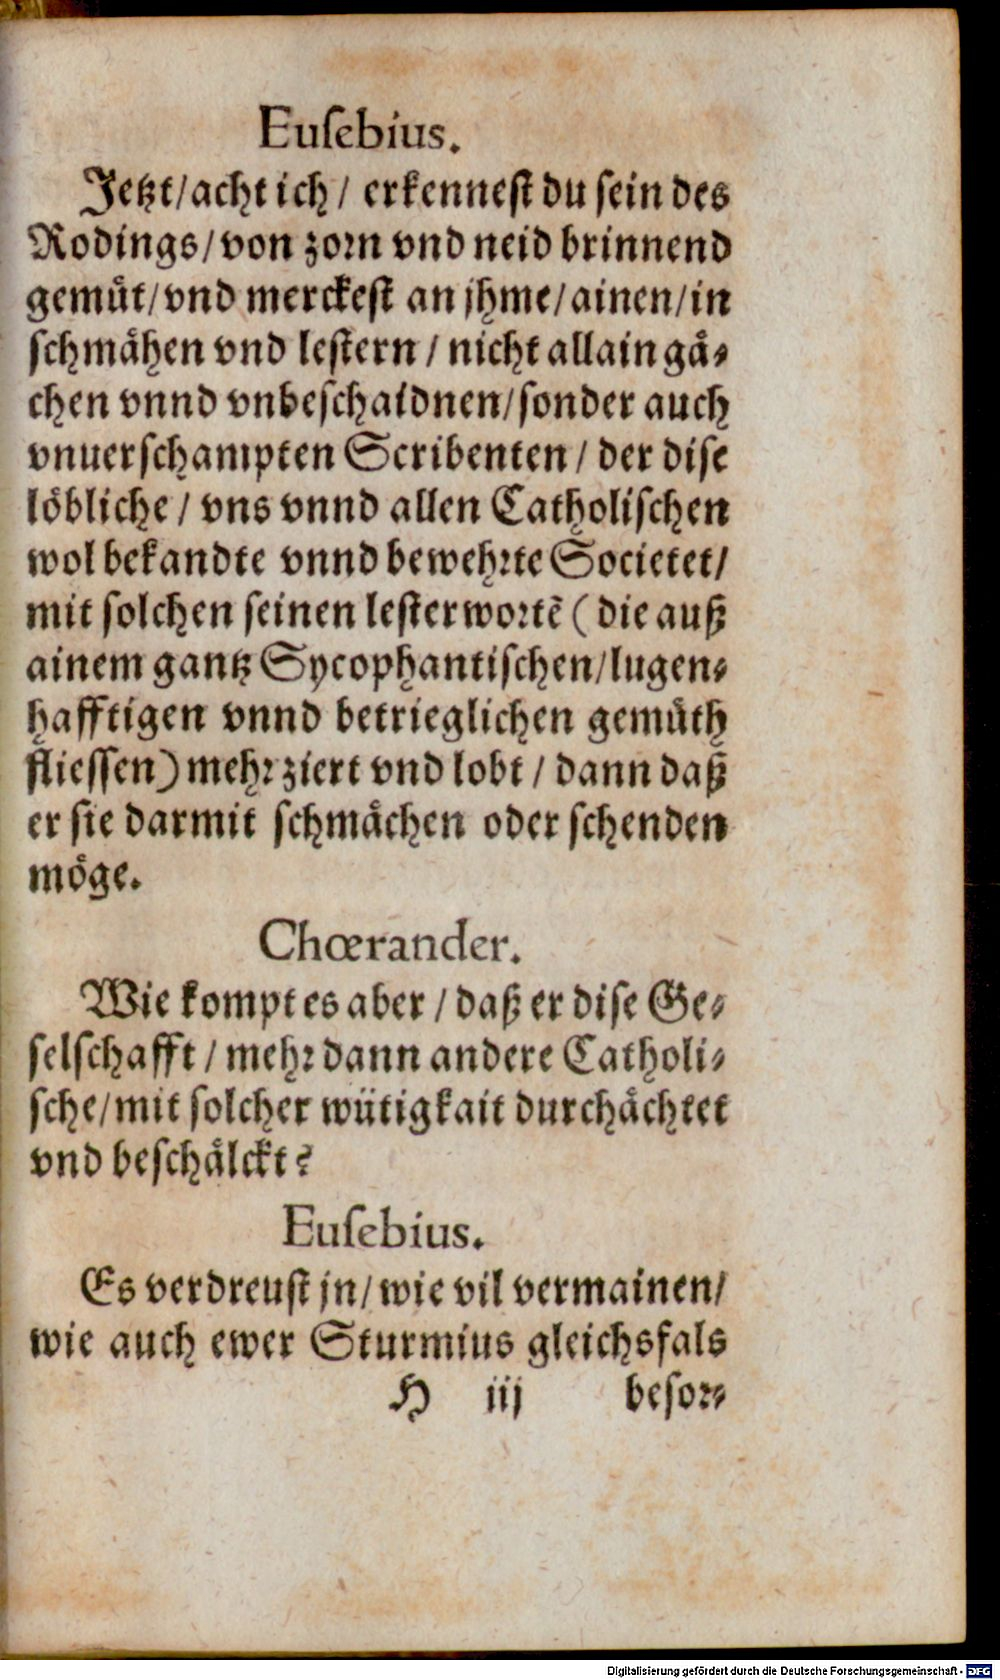 Euſebius.
Jetzt/acht ich/ erkennest du sein des
Rodings/von zorn vnd neid brinnend
gemuͤt/vnd merckest an jhme/ainen/in
schmaͤhen vnd lestern / nicht allain gaͤ⸗
chen vnnd vnbeschaidnen/sonder auch
vnuerschampten Scribenten / der dise
loͤbliche / vns vnnd allen Catholischen
wol bekandte vnnd bewehrte Societet/
mit solchen seinen lesterwortē ( die auß
ainem gantz Sycophantischen/lugen⸗
hafftigen vnnd betrieglichen gemuͤth
fliessen) mehr ziert vnd lobt / dann daß
er sie darmit schmaͤchen oder schenden
moͤge.
Chœrander.
Wie kompt es aber / daß er dise Ge⸗
selschafft / mehr dann andere Catholi⸗
sche/mit solcher wuͤtigkait durchaͤchtet
vnd beschaͤlckt?
Euſebius.
Es verdreust jn/ wie vil vermainen/
wie auch ewer Sturmius gleichsfals
H iij besor⸗
Digitalisierung gefördert durch die Deutsche Forschungsgemeinschaft - DFG